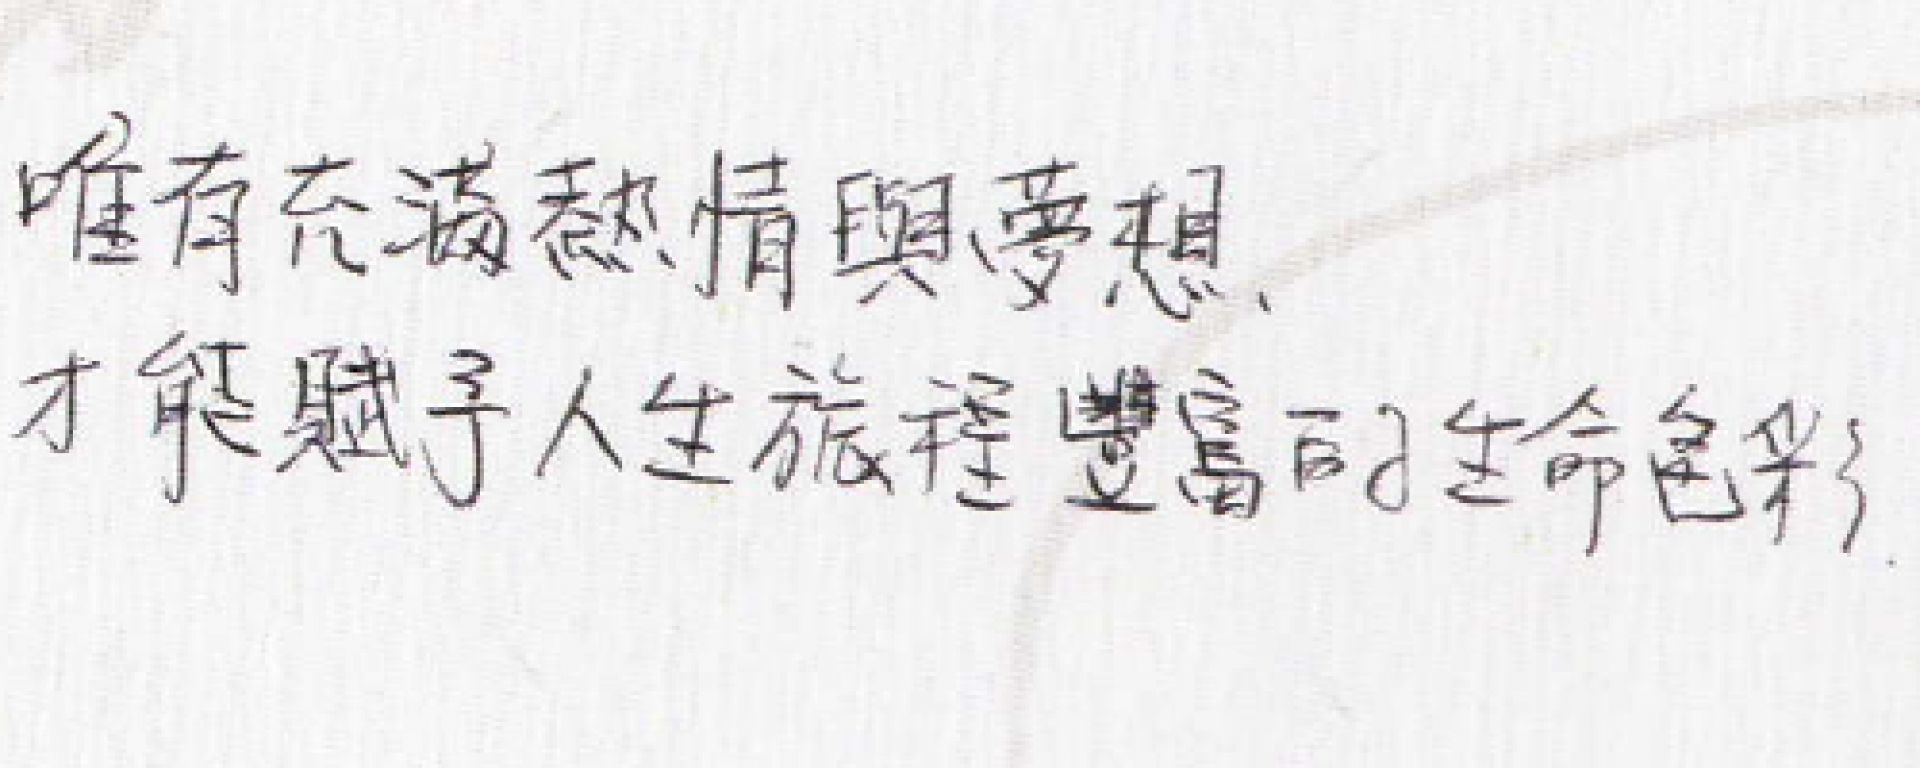 唯有充滿熱情與夢想、
才能賦予人生旅程豐富的生命色彩.